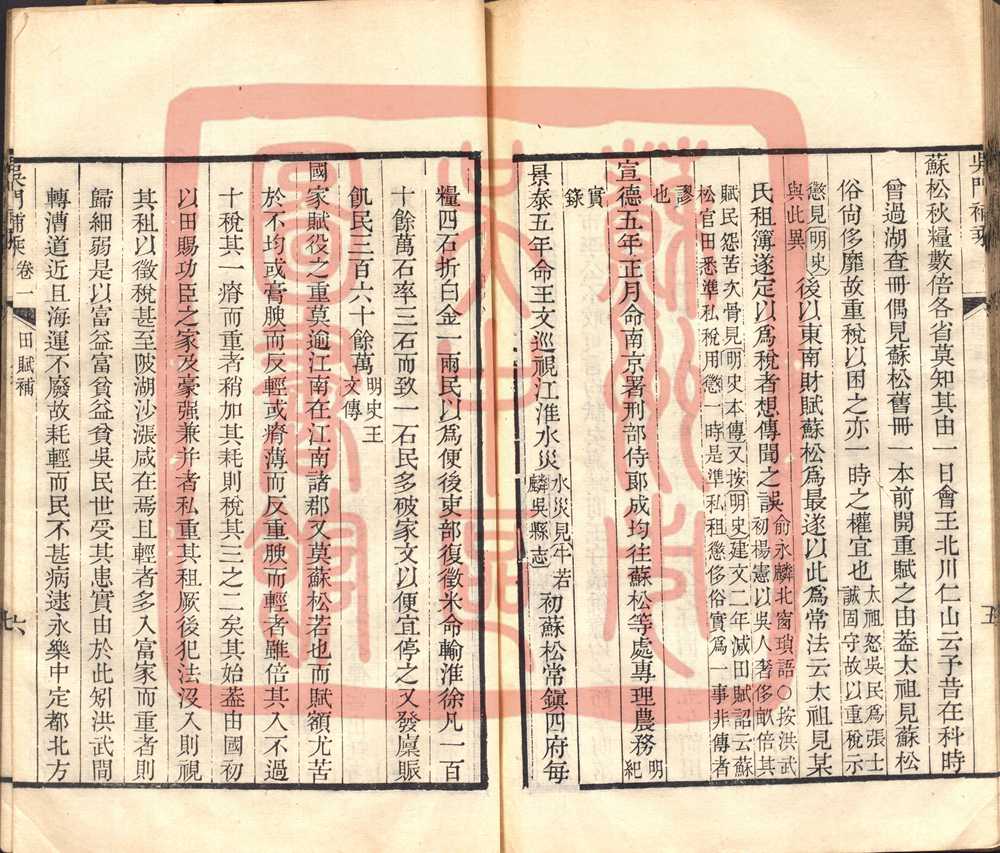 吳門補乘
五
蘇松秋糧數倍各省莫知其由一日會王北川仁山云予昔在科時
曾過湖查冊偶見蘇松舊冊一本前開重賦之由葢太祖見蘇松
俗尙侈靡故重稅以困之亦一時之權宜也太祖怒吳民爲張士誠固守故以重稅示
懲見明史與此異後以東南財賦蘇松爲最遂以此爲常法云太祖見某
氏租簿遂定以爲稅者想傳聞之誤俞永麟北窗瑣語○按洪武初楊憲以吳人奢侈畝倍其
賦民怨苦次骨見明史本傳又按明史建文二年減田賦詔云蘇松官田悉準私稅用懲一時是準私租懲侈俗實爲一事非傳者
謬也
宣德五年正月命南京署刑部侍郎成均往蘇松等處專理農務明紀
實錄
景泰五年命王文巡視江淮水災水災見牛若麟吳縣志初蘇松常鎭四府每
糧四石折白金一兩民以爲便後吏部復徵米命輸淮徐凡一百
十餘萬石率三石而致一石民多破家文以便宜停之又發廩賑
飢民三百六十餘萬明史王文傳
國家賦役之重莫逾江南在江南諸郡又莫蘇松若也而賦額尤苦
於不均或膏腴而反輕或瘠薄而反重腴而輕者雖倍其入不過
十稅其一瘠而重者稍加其耗則稅其三之二矣其始葢由國初
以田賜功臣之家及豪强兼并者私重其租厥後犯法沒入則視
其租以徵稅甚至陂湖沙漲咸在焉且輕者多入富家而重者則
歸細弱是以富益富貧益貧吳民世受其患實由於此矧洪武間
轉漕道近且海運不廢故耗輕而民不甚病逮永樂中定都北方
吳門補乘 卷一 田賦補
六